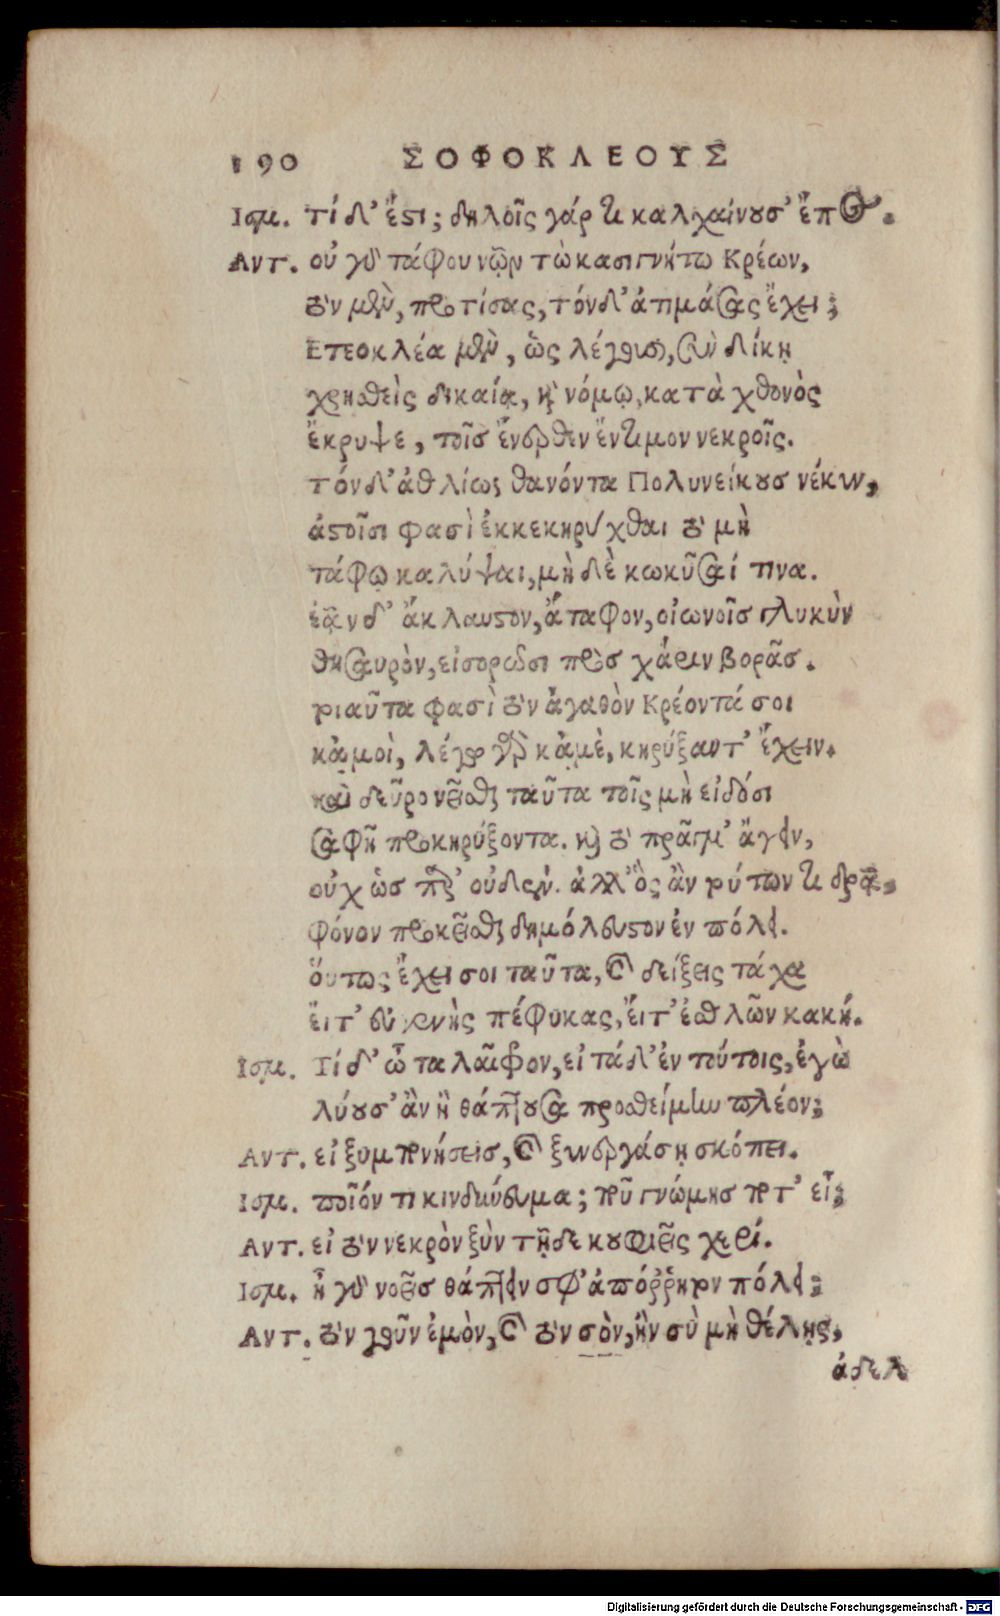 190 ΣΟΦΟΚΛΕΟΥΣ
Ισμ. τί δ' ἔστι; δηλοῖς γάρ τι καλχαίνουσ' ἔπος.
Αντ. οὐ γὸ τάφου νῶϊν τὼ κασιγνήτω Κρέων,
τὸν μὲν, προτίσας, τόνδ' ἀτιμάσας ἔχει;
Ετεοκλέα μὲν, ὡς λέγουσι, σὺν δίκῃ
χρηθεὶς δικαίᾳ, καὶ νόμῳ, κατὰ χθονὸς
ἔκρυψε, τοῖσ ἔνερθεν ἔντιμον νεκροῖς.
τόνδ' ἀθλίως θανόντα Πολυνείκουσ νέκυν,
ἀστοῖσι φασὶ ἐκκεκηρύχθαι τὸ μὴ
τάφῳ καλύψαι, μὴ δὲ κωκῦσαί τινα.
ἐᾷν δ' ἄκλαυστον, ἄταφον, οἰωνοῖσ γλυκὺν
θησαυρὸν, εἰσορῶσι πρὸσ χάριν βορᾶσ.
τοιαῦτα φασὶ τὸν ἀγαθὸν Κρέοντά σοι
κᾀμοὶ, λέγω γὰρ κᾀμὲ, κηρύξαντ' ἔχειν.
καὶ δεῦρο νεῖσθαι ταῦτα τοῖς μὴ εἰδόσι
σαφῆ προκηρύξοντα. καὶ τὸ πρᾶγμ' ἄγειν,
οὐχ ὡσ παρ' οὐδεν. ἀλλ' ὃς ἂν τούτων τι δρᾷ,
φόνον προκεῖσθαι δημόλευστον ἐν πόλει.
ὅυτως ἔχει σοι ταῦτα, καὶ δείξεις τάχα
ἔιτ' εὐγενὴς πέφυκας, ἔιτ' ἐσθλῶν κακή.
Ισμ. Τί δ' ὦ ταλαῖφρον, εἰ τάδ' ἐν τούτοις, ἐγὼ
λύουσ' ἂν ἢ θάπτουσα προσθείμην πλέον;
Αντ. εἰ ξυμπονήσεισ, καὶ ξυνεργάσῃ σκόπει.
Ισμ. ποῖόν τι κινδύνευμα; ποῦ γνώμησ ποτ' εἶ;
Αντ. εἰ τὸν νεκρὸν ξὺν τῇδε κουφιεῖς χερί.
Ισμ. ἦ γὸ νοεῖσ θάπτειν σφ' ἀπόῤῥητον πόλει;
Αντ. τὸν γοῦν ἐμὸν, καὶ τὸν σὸν, ἢν σὺ μὴ θέλῃς,
ἀδελ
Digitalisierung gefördert durch die Deutsche Forschungsgemeinschaft - DFG